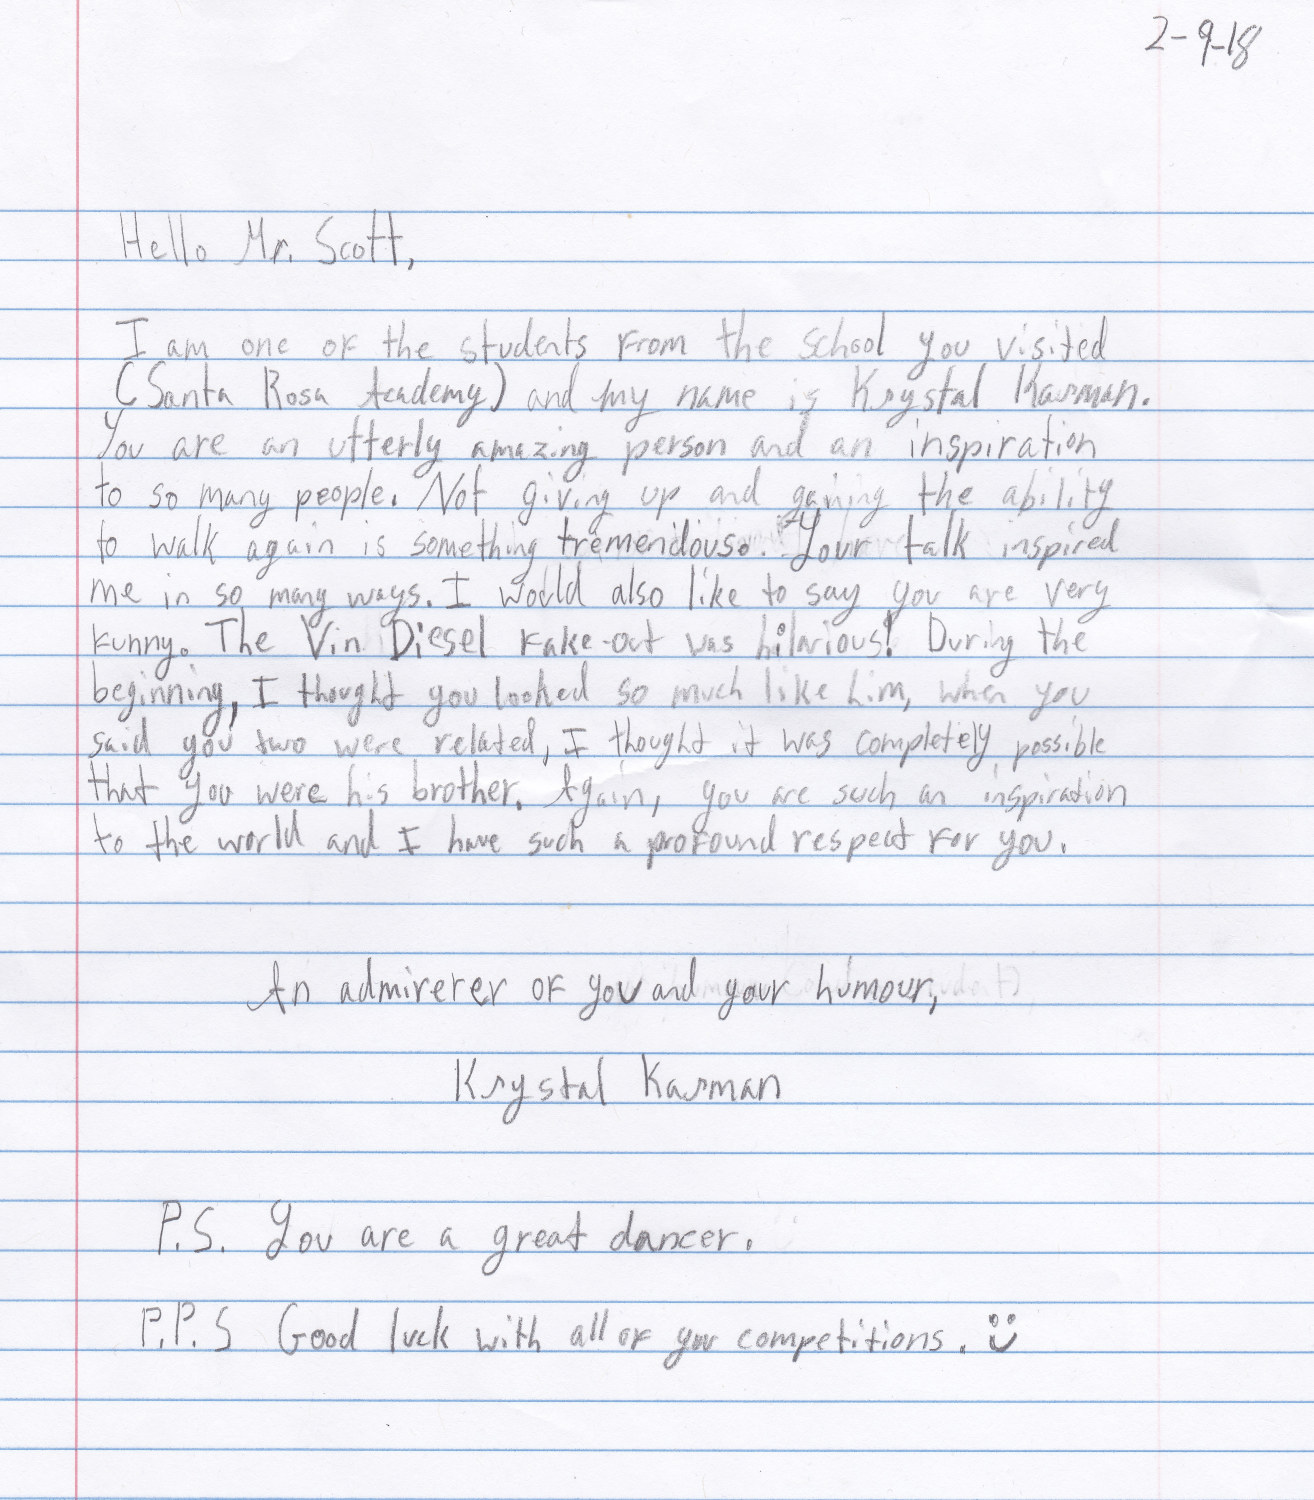 2-9-18
Hello Mr. Scott,
I am one of the students from the school you visited
(Santa Rosa Academy) and my name is Krystal Karman.
You are an utterly amazing person and an inspiration
to so many people. Not giving up and gaining the ability
to walk again is something tremendouso. Your talk inspired
me in so many ways. I would also like to say you are very
funny. The Vin Diesel fake-out was hilarious! During the
beginning, I thought you looked so much like him, when you
said you two were related, I thought it was completely possible
that you were his brother. Again, you are such an inspiration
to the world and I have such a profound respect for you.
An admirerer of you and your humour,
Krystal Karman
P.S. You are a great dancer.
P.P.S Good luck with all of your competitions. :)